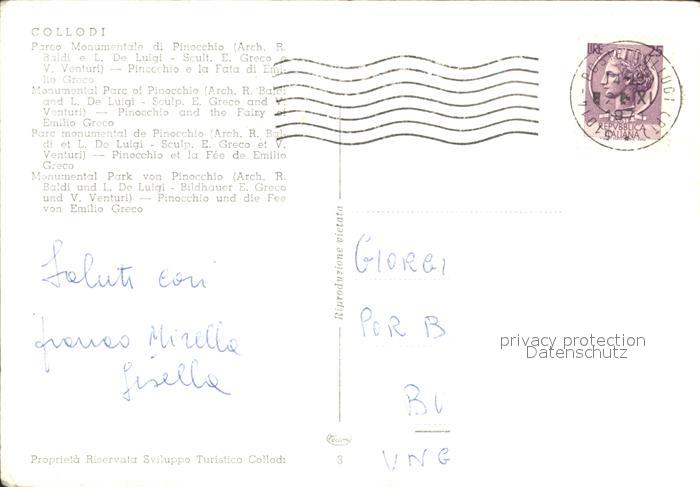 COLLODI
Parco Monumentale di Pinocchio (Arch. R.
Baldi e L. De Luigi - Scult. E. Greco e
V. Venturi) — Pinocchio e la Fata di Emi-
lio Greco
Monumental Parc of Pinocchio (Arch. R. Baldi
and L. De Luigi - Sculp. E. Greco and V.
Venturi) — Pinocchio and the Fairy of
Emilio Greco
Parc monumental de Pinocchio (Arch. R. Bal-
di et L. De Luigi - Sculp. E. Greco et V.
Venturi) — Pinocchio et la Fée de Emilio
Greco
Monumental Park von Pinocchio (Arch. R.
Baldi und L. De Luigi - Bildhauer E. Greco
und V. Venturi) — Pinocchio und die Fee
von Emilio Greco
Saluti cari
franco Mirella
Gisella
Proprietà Riservata Sviluppo Turistico Collodi
3
Riproduzione vietata
LIRE 25
REPVBBLICA
ITALIANA
GIORGI
POR B
BI
UNG
privacy protection
Datenschutz